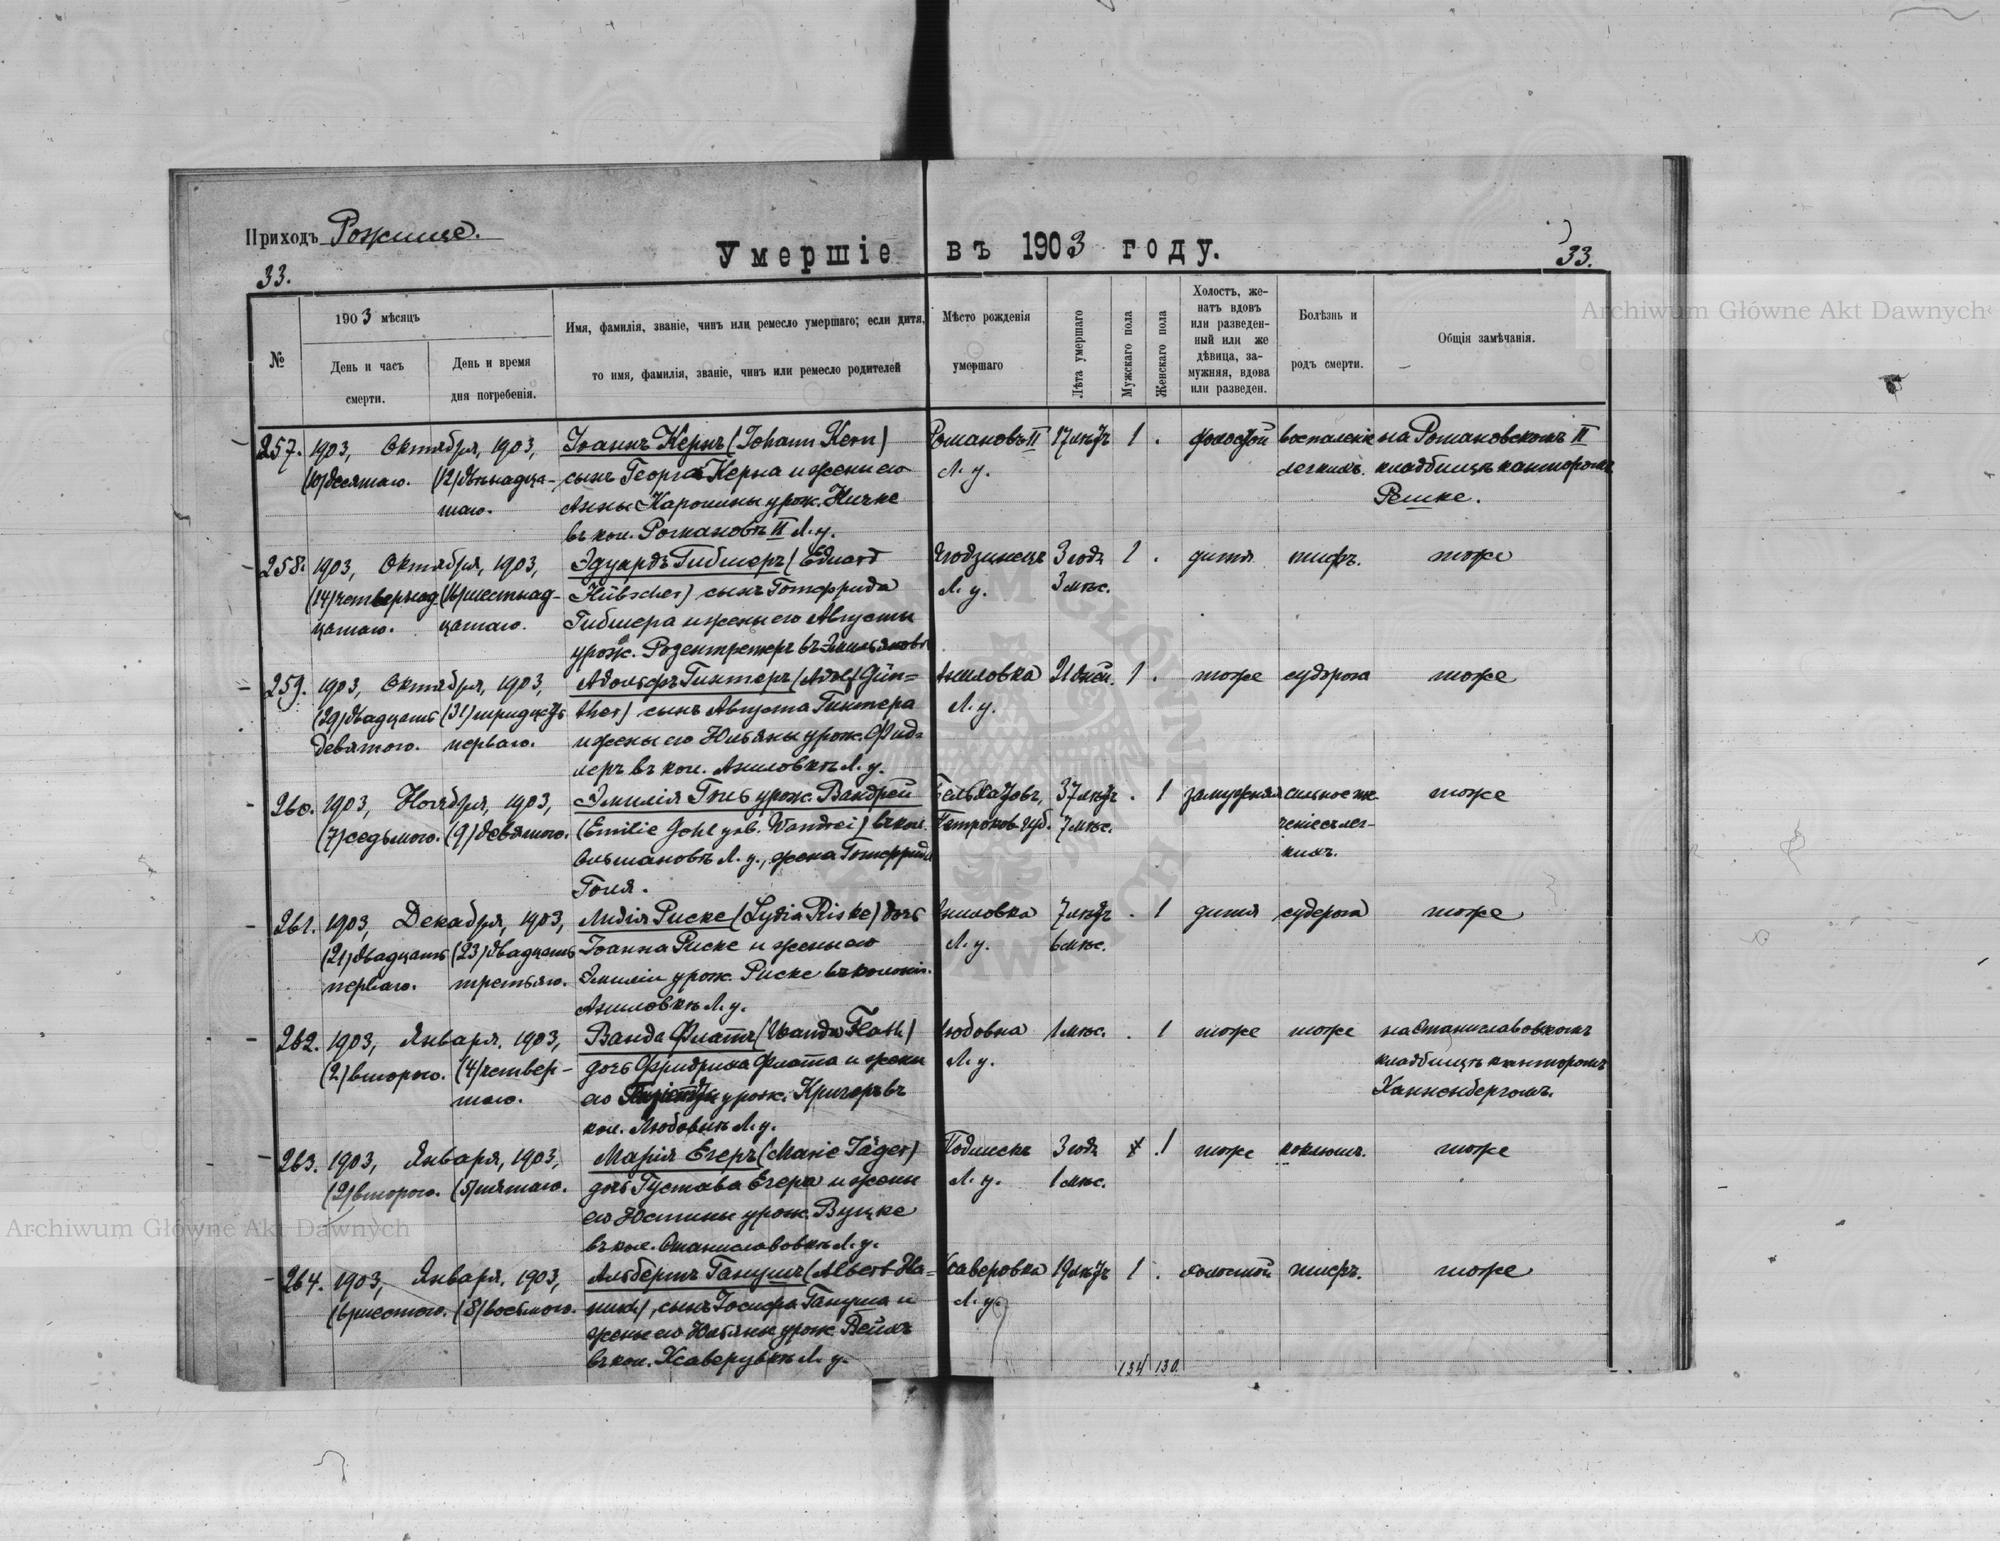 Приходъ Рожище.
Умершіе въ 1903 году.
33.
33.
№
1903 мѣсяцъ
День и часъ
смерти.
День и время
дня погребенія.
Имя, фамилія, званіе, чинъ или ремесло умершаго; если дитя,
то имя, фамилія, званіе, чинъ или ремесло родителей
Мѣсто рожденія
умершаго
Лѣта умершаго
Мужскаго пола
Женскаго пола
Холостъ, же-
натъ вдовъ
или разведен-
ный или же
дѣвица, за-
мужняя, вдова
или разведен.
Болѣзнь и
родъ смерти.
Общія замѣчанія.
257. 1903, Октября, 1903, Іоаннъ Кернъ (Johann Kern) Романовъ II 17 лѣтъ 1 . холостой воспаленіе на Романовскомъ II
(10) десятаго. (12) двѣнадца- сынъ Георга Керна и жены его Л. у. легкихъ. кладбищѣ канторомъ
таго. Анны Каролины урож. Ничке Решке.
въ кол. Романовѣ II Л. у.
258. 1903, Октября, 1903, Эдуардъ Гибшеръ (Eduard 3 года 1 . дитя тифъ. тоже
(14) четырнад (16) шестнад- Hübscher) сынъ Готфрида Л. у. 3 мѣс.
цатаго. цатаго. Гибшера и жены его Августы
урож. Розентретеръ въ
259. 1903, Октября, 1903, Адольфъ Гинтеръ (Adolf Gün= Аниловка 21 дней. 1 . тоже судорога тоже
(29) двадцать (31) тридцать ther) сынъ Августа Гинтера Л. у.
девятого. перваго. и жены его Юльяны урож. Фид=
леръ въ кол. Аниловкѣ Л. у.
260. 1903, Ноября, 1903, Эмилія Голь урож. Вандрей Бельхатовъ, 37 лѣтъ . 1 замужняя сильное те- тоже
(7) седьмого. (9) девятого. (Emilie Gohl geb. Wandrei) въ кол. Петроков. губ. 7 мѣс. ченіе съ лег-
Ольгановѣ Л. у., жена Готфрида кихъ.
Голя.
261. 1903, Декабря, 1903, Лидія Риске (Lydia Riske) дочь Аниловка 7 лѣтъ . 1 дитя судорога тоже
(21) двадцать (23) двадцать Іоанна Риске и жены его Л. у. 6 мѣс.
перваго. третьяго. Эмиліи урож. Риске въ колоніи
Аниловкѣ Л. у.
262. 1903, Января, 1903, Ванда Флатъ (Wanda Flath) Любовка 1 мѣс. . 1 тоже тоже на Станиславовскомъ
(2) второго. (4) четвер- дочь Фридриха Флата и жены Л. у. кладбищѣ канторомъ
таго. его урож. Кригеръ въ Ханненбергомъ.
кол. Любовкѣ Л. у.
263. 1903, Января, 1903, Марія Егеръ (Marie Jäger) 3 года . 1 тоже коклюшъ. тоже
(2) второго. (5) пятаго. дочь Густава Егера и жены Л. у. 1 мѣс.
его Юстины урож. Вуцке
въ кол. Станиславовкѣ Л. у.
264. 1903, Января, 1903, Альбертъ Ганушъ (Albert Ha= Ксаверовка 19 лѣтъ 1 . холостой тифъ. тоже
(6) шестого. (8) восьмого. сынъ Іосифа Гануша и Л. у.
жены его Юльяны урож. Вейхъ
въ кол. Ксаверувкѣ Л. у.
134 130.
Archiwum Główne Akt Dawnych
Archiwum Główne Akt Dawnych